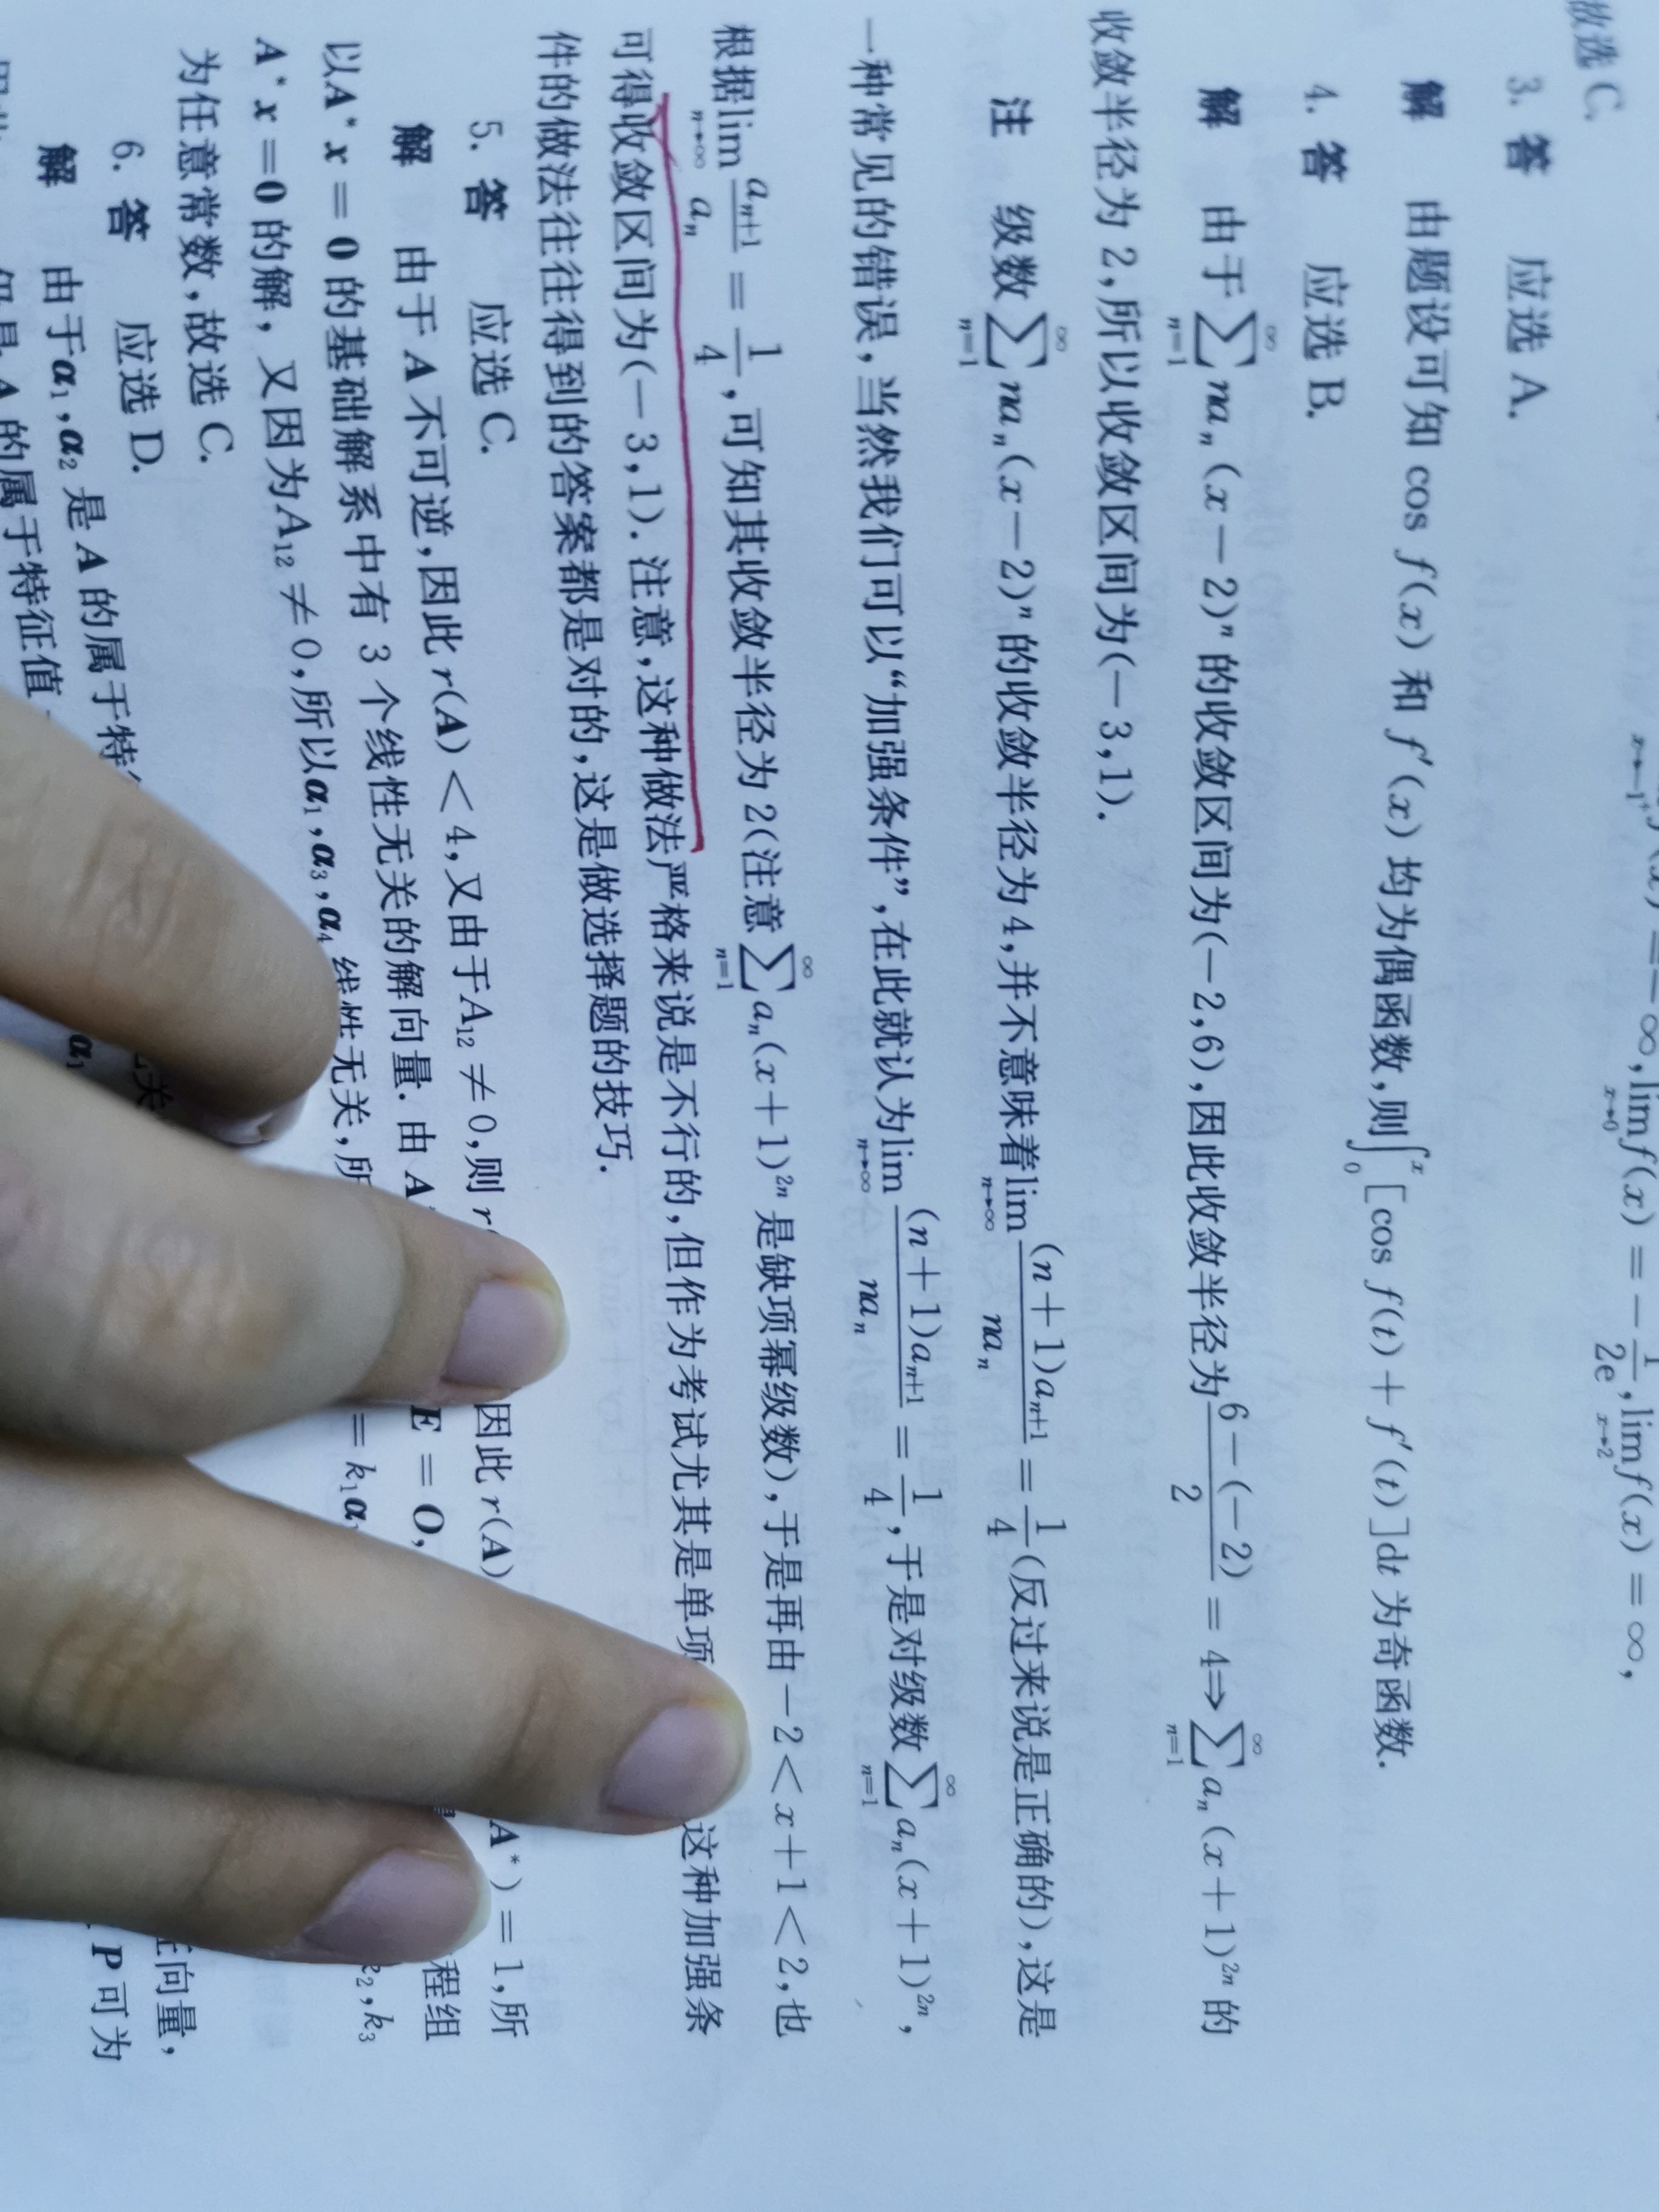 故选 C.
lim_{x→0} f(x) = -1/2e, lim_{x→2} f(x) = ∞,
3. 答 应选 A.
解 由题设可知 cos f(x) 和 f′(x) 均为偶函数,则∫_0^x [cos f(t) + f′(t)]dt 为奇函数.
4. 答 应选 B.
解 由于∑_{n=1}^∞ na_n(x-2)^n 的收敛区间为(-2,6),因此收敛半径为 (6-(-2))/2 = 4⇒∑_{n=1}^∞ a_n(x+1)^{2n} 的
收敛半径为 2,所以收敛区间为(-3,1).
注 级数∑_{n=1}^∞ na_n(x-2)^n 的收敛半径为 4,并不意味着lim_{n→∞} (n+1)a_{n+1}/na_n = 1/4(反过来说是正确的),这是
一种常见的错误,当然我们可以“加强条件”,在此就认为lim_{n→∞} (n+1)a_{n+1}/na_n = 1/4,于是对级数∑_{n=1}^∞ a_n(x+1)^{2n},
根据lim_{n→∞} a_{n+1}/a_n = 1/4,可知其收敛半径为 2(注意∑_{n=1}^∞ a_n(x+1)^{2n} 是缺项幂级数),于是再由-2<x+1<2,也
可得收敛区间为(-3,1).注意,这种做法严格来说是不行的,但作为考试尤其是单项 这种加强条
件的做法往往得到的答案都是对的,这是做选择题的技巧.
5. 答 应选 C.
解 由于 A 不可逆,因此 r(A)<4,又由于A₁₂≠0,则 r 因此 r(A A*)=1,所
以A*x=0 的基础解系中有 3 个线性无关的解向量.由 A E=O, 程组
A*x=0 的解,又因为A₁₂≠0,所以α₁,α₃,α₄ 线性无关,所 =k₁α ₂,k₃
为任意常数,故选 C.
6. 答 应选 D.
解 由于α₁,α₂ 是 A 的属于特 向量,
A 的属于特征值 α₁ P 可为